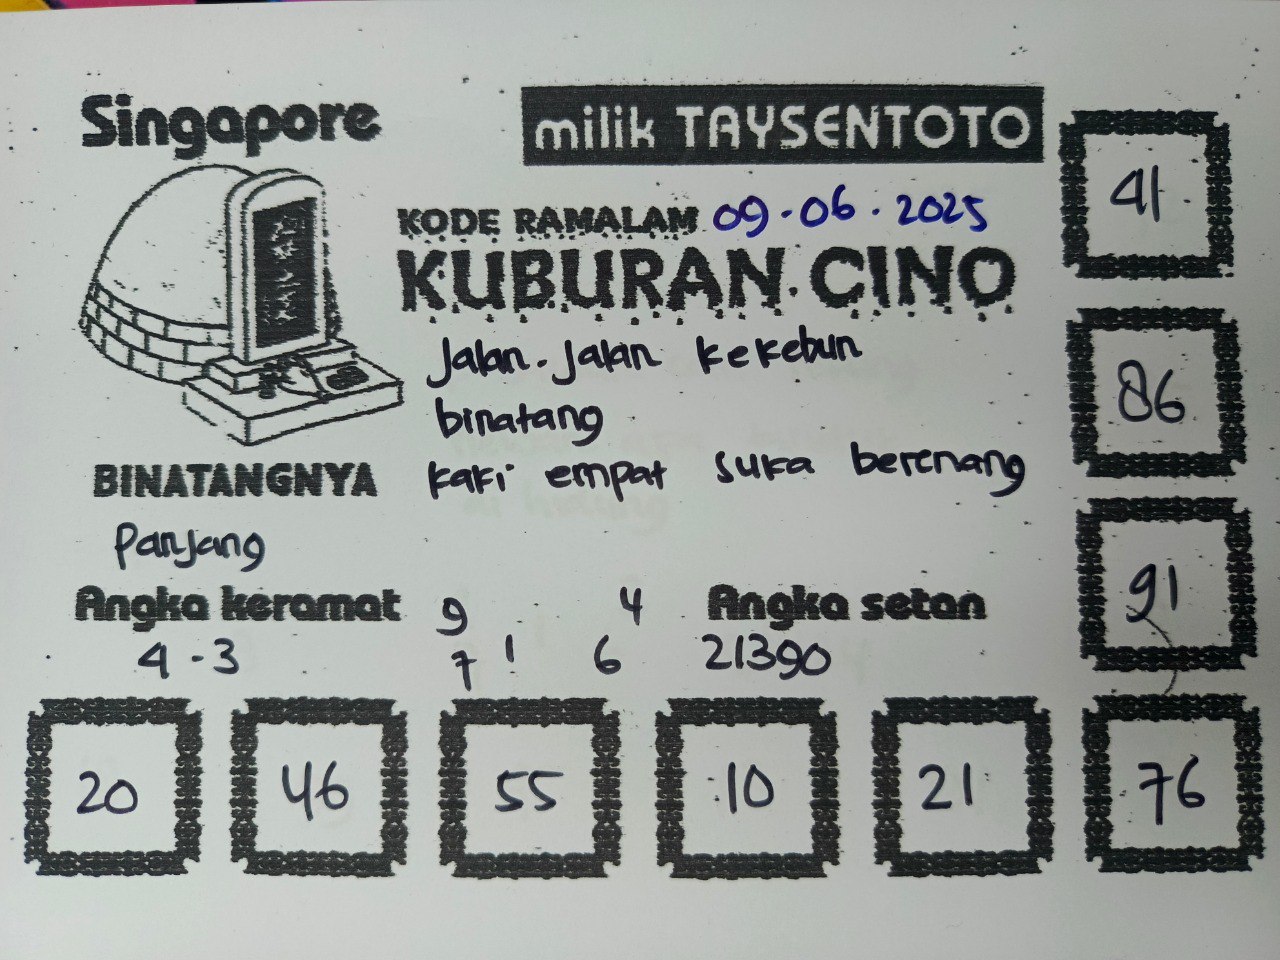 Singapore
milik TAYSENTOTO
KODE RAMALAM 09.06.2025
KUBURAN CINO
Jalan-Jalan kekebun
binatang
BINATANGNYA kaki empat suka berenang
Panjang
Angka keramat 9 4 Angka setan
4-3 7 1 6 21390
41
86
91
20 46 55 10 21 76